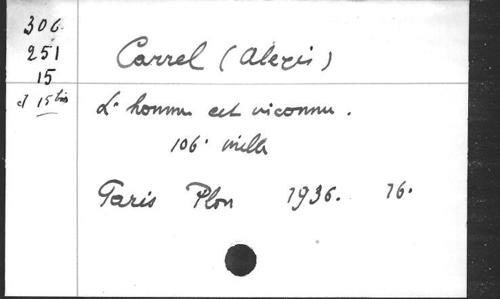 306
251
15
et 15 bis
Carrel (Alexis)
L'homme cet inconnu.
106e mille
Paris Plon 1936. 16.